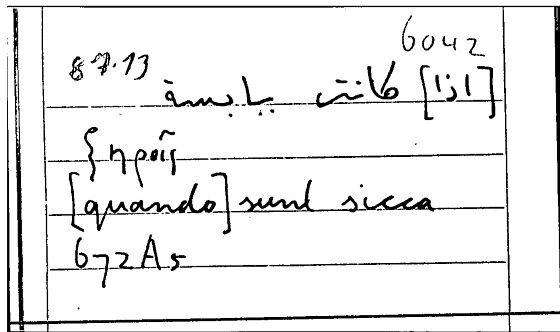 6042
87.13
[اذا] كانت يابسة
ξηροῖς
[quando] sunt sicca
672A5